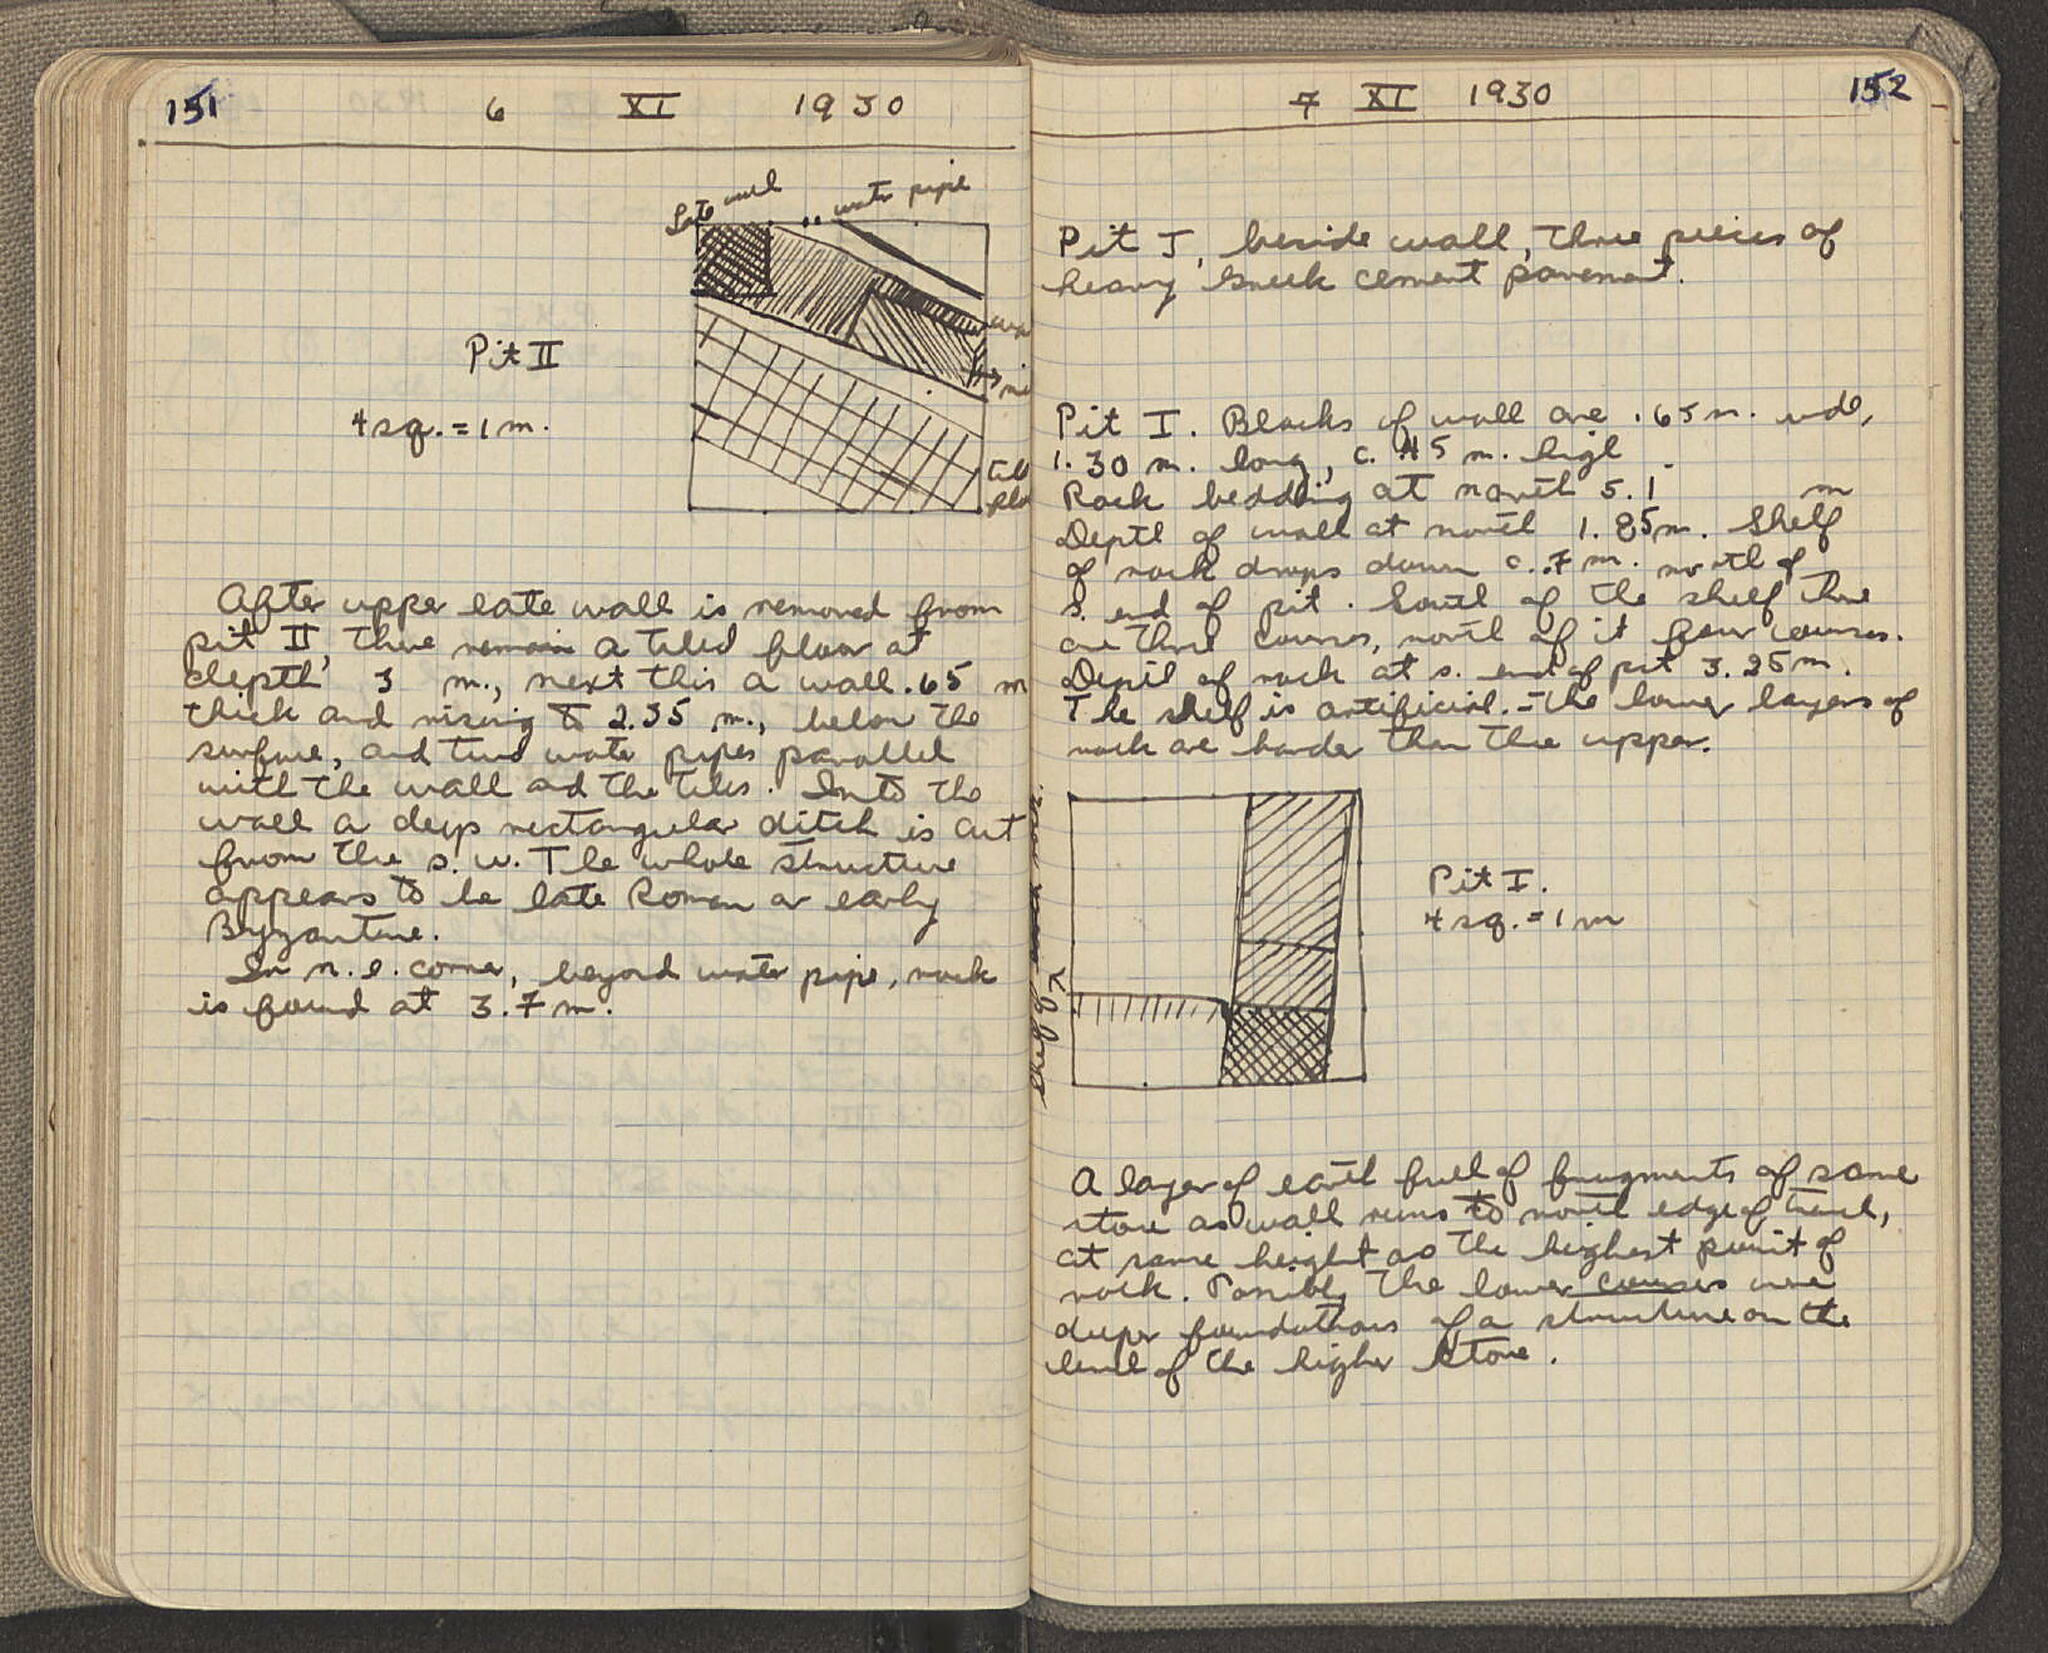 151 6 XI 1930
Late wall
water pipe
Pit II
4 sq. = 1 m.
After upper late wall is removed from
pit II, there remain a tiled floor at
depth 3 m., next this a wall .65 m
thick and rising to 2.35 m., below the
surface, and two water pipes parallel
with the wall and the tiles. Into the
wall a deep rectangular ditch is cut
from the s.w. The whole structure
appears to be late Roman or early
Byzantine.
In n.e. corner, beyond water pipe, rock
is found at 3.7 m.
7 XI 1930 152
Pit I, beside wall, three pieces of
heavy Greek cement pavement.
Pit I. Blocks of wall are .65 m. wide,
1.30 m. long, c. .45 m. high.
Rock bedding at north 5.1 m
Depth of wall at north 1.85 m. Shelf
of rock drops down c. .7 m. north of
s. end of pit. South of the shelf there
are three courses, north of it four courses.
Depth of rock at s. end of pit 3.25 m.
The shelf is artificial. - The lower layers of
rock are harder than the upper.
Shelf of rock
Pit I.
4 sq. = 1 m
A layer of earth full of fragments of same
stone as wall runs to north edge of trench,
at same height as the highest point of
rock. Possibly the lower courses were
deeper foundations of a structure on the
level of the higher stone.